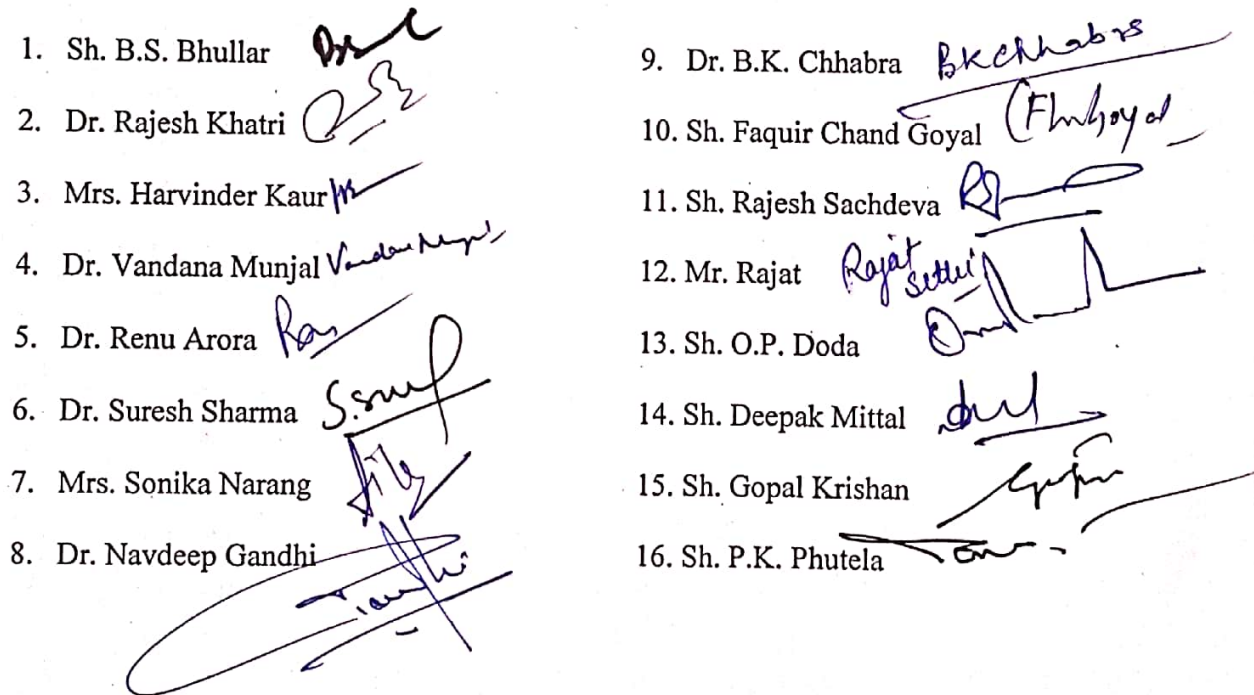 1. Sh. B.S. Bhullar
2. Dr. Rajesh Khatri
3. Mrs. Harvinder Kaur
4. Dr. Vandana Munjal
5. Dr. Renu Arora
6. Dr. Suresh Sharma
7. Mrs. Sonika Narang
8. Dr. Navdeep Gandhi
9. Dr. B.K. Chhabra BKChhabra
10. Sh. Faquir Chand Goyal
11. Sh. Rajesh Sachdeva
12. Mr. Rajat Rajat Sethi
13. Sh. O.P. Doda
14. Sh. Deepak Mittal
15. Sh. Gopal Krishan
16. Sh. P.K. Phutela